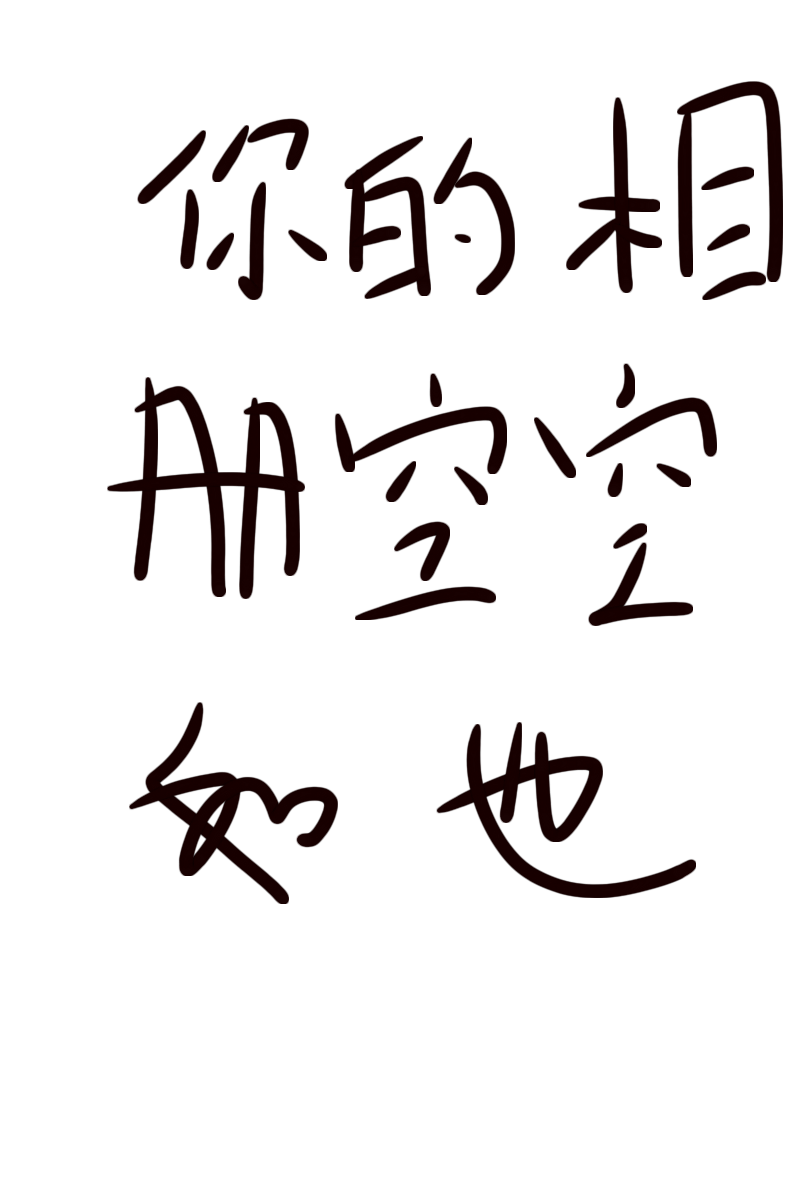 你的相
册空空
如也